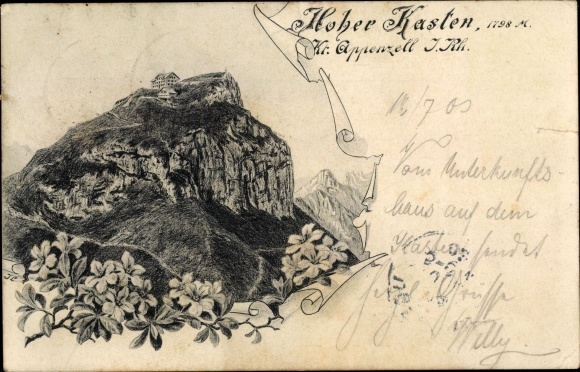 Hoher Kasten, 1798 M.
Kt. Appenzell I. Rh.
Vom Unterkunfts-
haus auf dem
Kasten sendet
Grüsse
Willy.